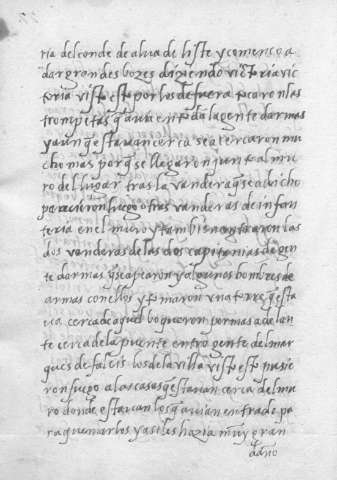 ria del conde de alva de liste y començo a
dar grandes bozes diziendo victoria vic
toria visto esto por los de fuera tocaron las
trompetas q avia en toda la gente darmas
y aunq estavan cerca se acercaron mu
cho mas porq se llegaron junto al mu
ro del lugar tras la vandera q se a dicho
parecieron luego otras vanderas de infan
teria en el muro y tambien entraron las
dos vanderas de las dos capitanias de gen
te darmas y algunos hombres de
armas con ellos y tomaron una torre q esta
va cerca de aquel boqueron por mas adelan
te cerca de la puente entro gente del mar
ques de falces los de la villa visto esto pusie
ron fuego a las casas q estavan cerca del mu
ro donde estavan los q avian entrado pa
ra quemarlos y asi les hazia muy gran
daño